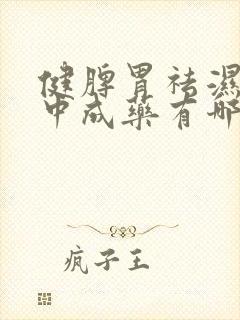 健脾胃祛濕
中成藥有哪
疯子王